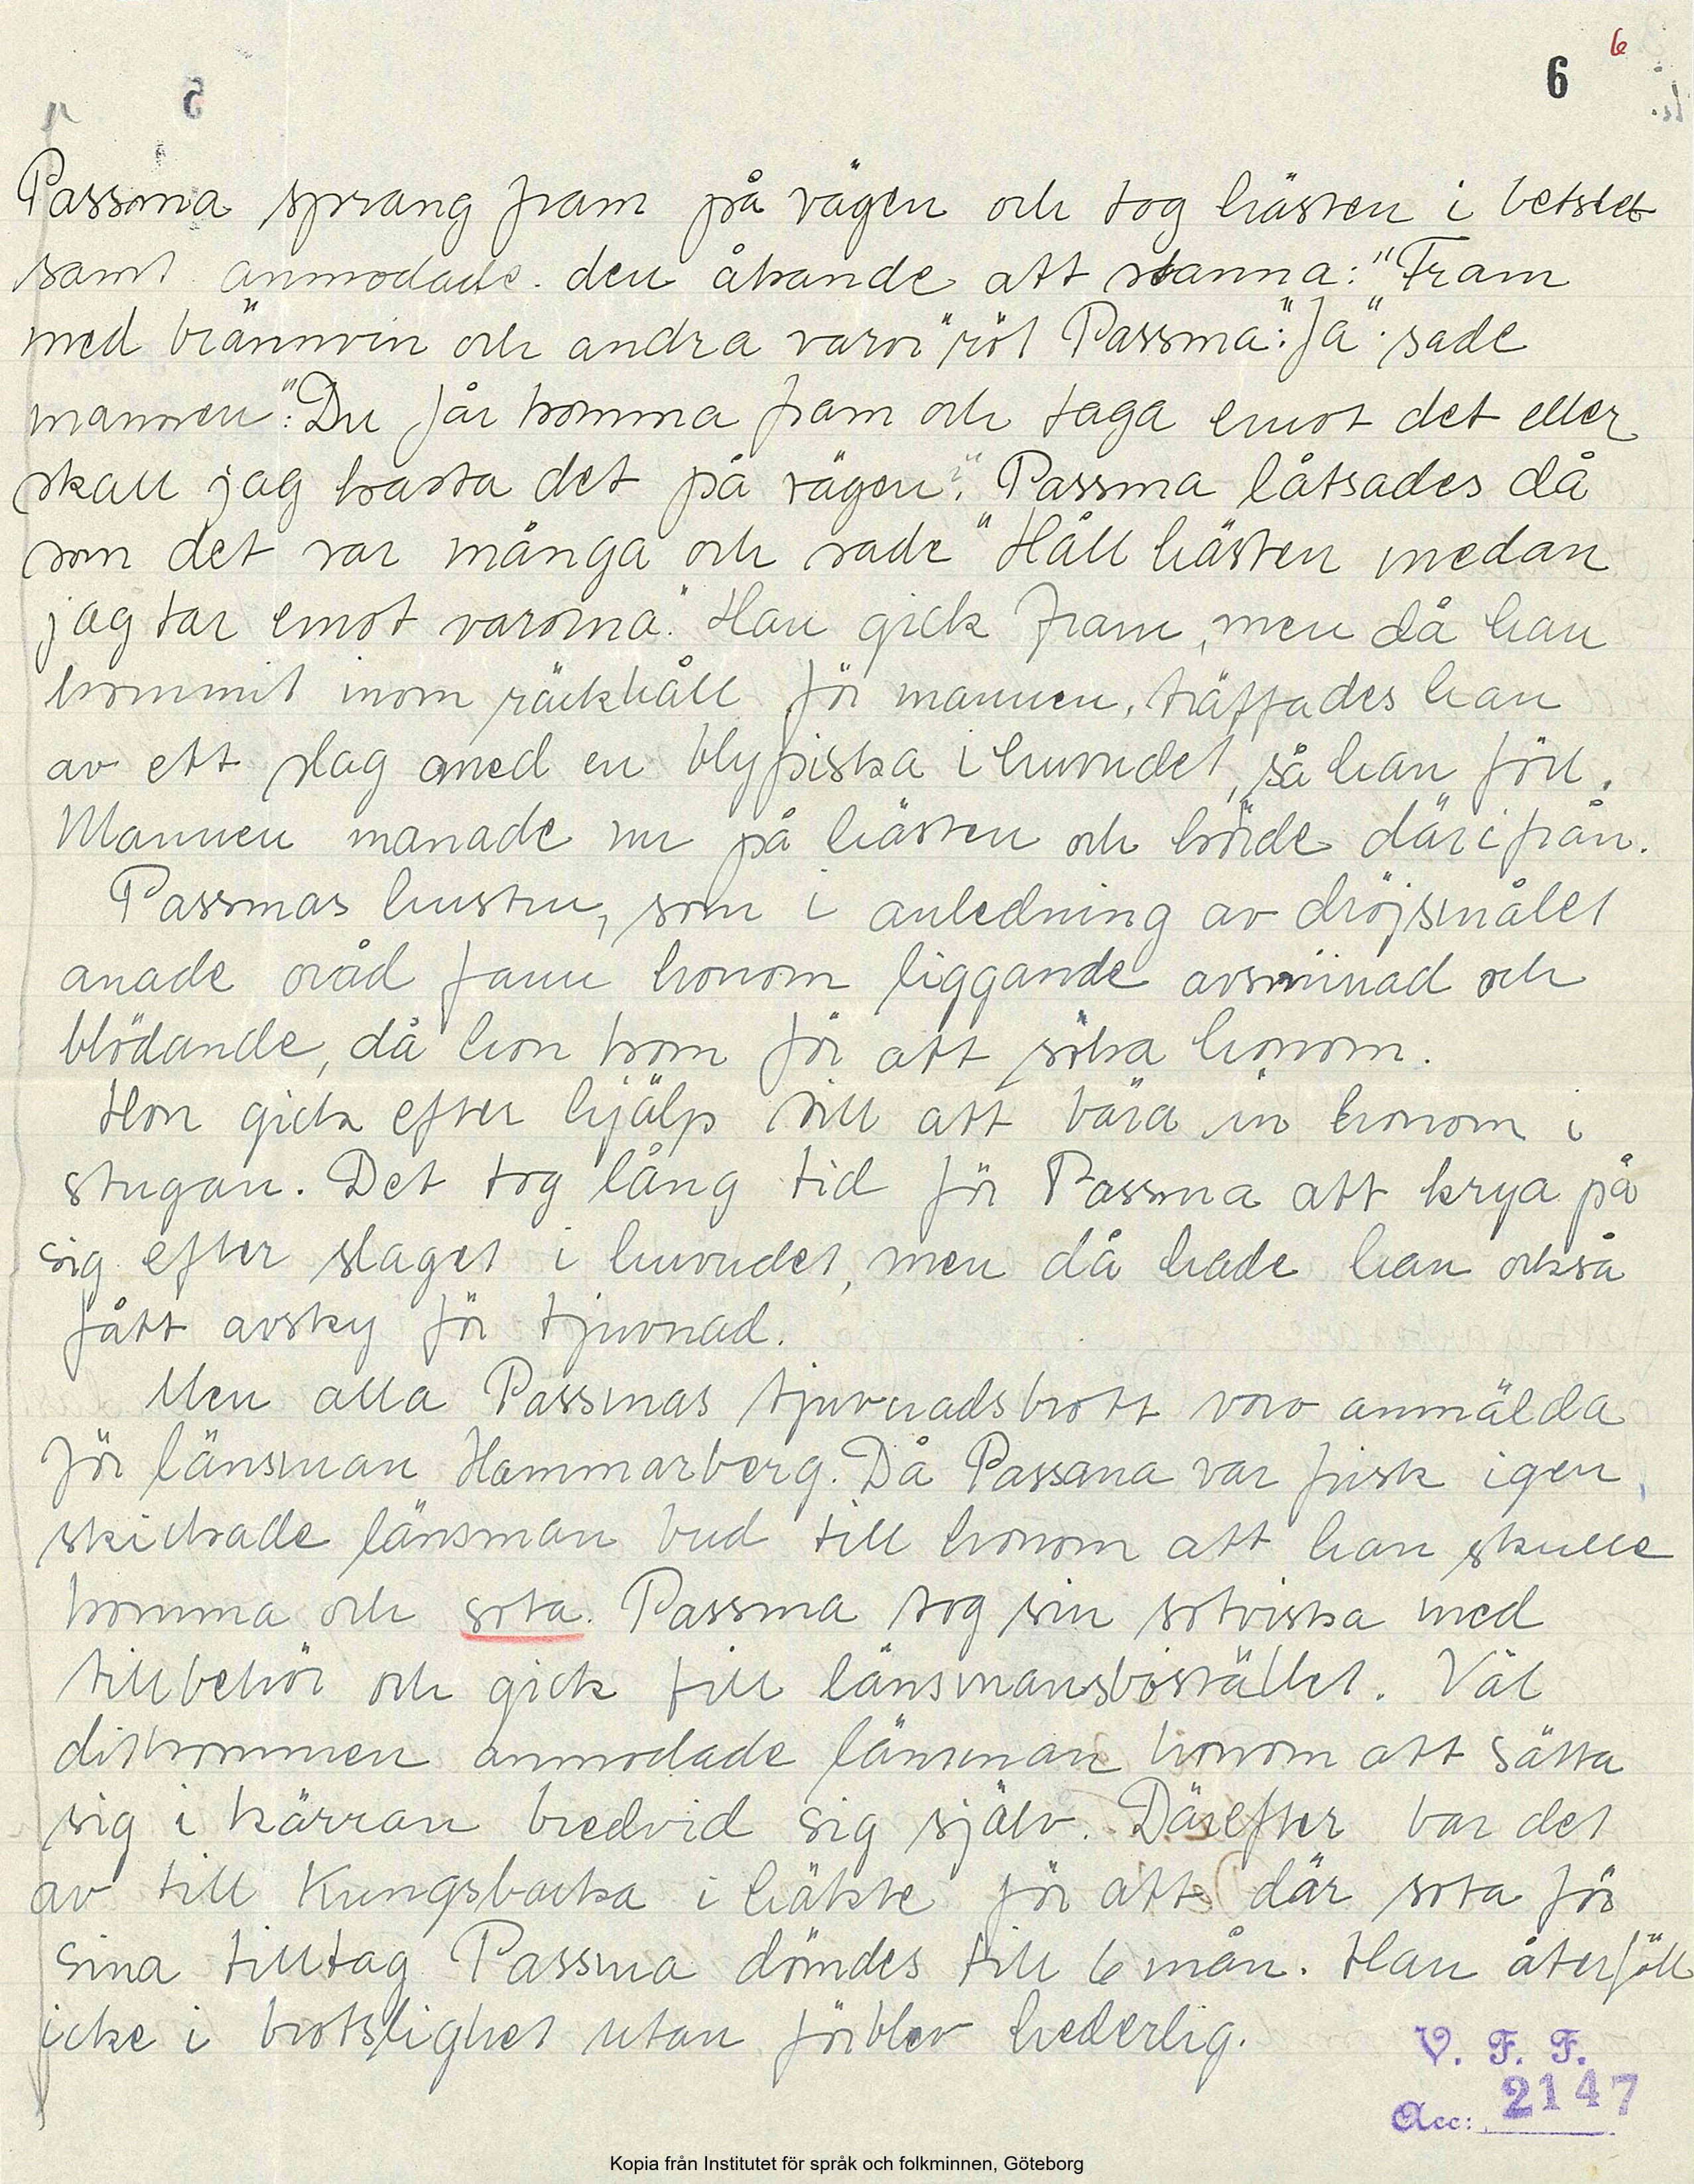 6
6
Passma sprang fram på vägen och tog hästen i betslet
samt anmodade den åkande att stanna: "Fram
med brännvin och andra varor" röt Passma: "Ja" sade
mannen: "Du får komma fram och taga emot det eller
skall jag kasta det på vägen". Passma låtsades då
som det var många och sade "Håll hästen medan
jag tar emot varorna." Han gick fram, men då han
kommit inom räckhåll för mannen, träffades han
av ett slag med en blypiska i huvudet, så han föll.
Mannen manade nu på hästen och körde därifrån.
Passmas hustru, som i anledning av dröjsmålet
anade oråd fann honom liggande avsvimmad och
blödande, då hon kom för att söka honom.
Hon gick efter hjälp till att bära in honom i
stugan. Det tog lång tid för Passma att krya på
sig efter slaget i huvudet, men då hade han också
fått avsky för tjuvnad.
Men alla Passmas tjuvnadsbrott voro anmälda
för länsman Hammarberg. Då Passma var frisk igen,
skickade länsman bud till honom att han skulle
komma och sota. Passma tog sin sotviska med
tillbehör och gick till länsmansbostället. Väl
ditkommen anmodade länsman honom att sätta
sig i kärran bredvid sig själv. Därefter bar det
av till Kungsbacka i häkte för att där sota för
sina tilltag Passma dömdes till 6 mån. Han återföll
icke i brottslighet utan förblev hederlig.
V. F. F.
Acc: 2147
Kopia från Institutet för språk och folkminnen, Göteborg